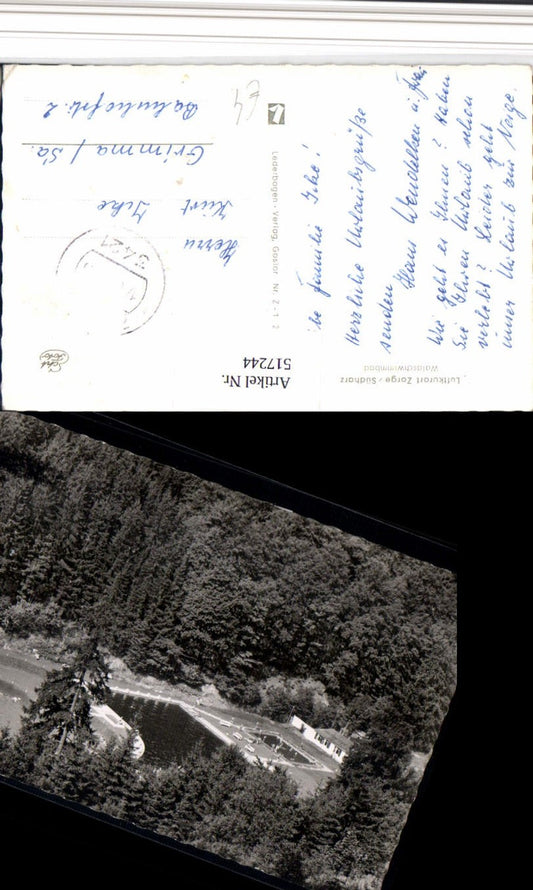 Luftkurort Zorge/Südharz
Waldschwimmbad
Familie Ihe!
Herzliche Urlaubsgrüße
senden Hans Wendelben u. Frau
Wie geht es Ihnen? Haben
Sie Ihren Urlaub schon
verlebt? Leider geht
unser Urlaub zur Neige.
Artikel Nr.
517244
Lederbogen-Verlag, Goslar Nr. Z-1-2
€4
Herrn
Kurt Ihe
Grimma / Sa.
Bahnhofstr. 2